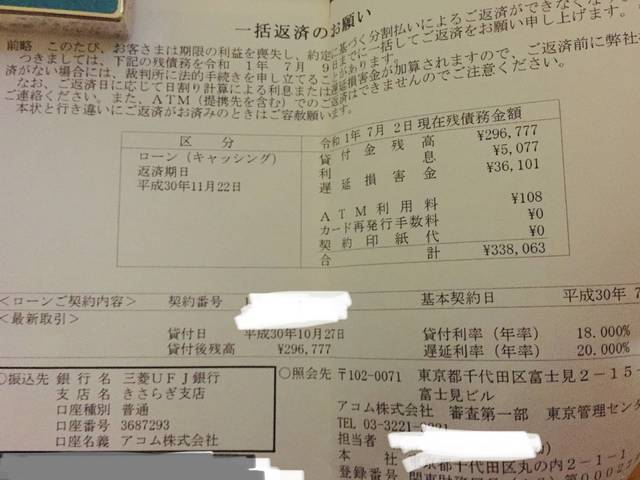 一括返済のお願い
前略　このたび、お客さまは期限の利益を喪失し、約定に基づく分割払いによるご返済ができなくな
つきましては、下記の残債務を令和　1年　7月　9日までに一括してご返済をお願い申し上げます。
済がない場合には、裁判所に法的手続きを申し立てることがあります。
なお、ご返済日に応じて日割り計算による利息または遅延損害金が加算されますので、ご返済前に弊社
ご連絡ください。また、ATM（提携先を含む）でのご返済はできませんのでご注意ください。
本状と行き違いにご返済がお済みのときはご容赦願います。
区　分
ローン（キャッシング）
返済期日
平成30年11月22日
令和1年　7月　2日現在残債務金額
貸付金残高　¥296,777
利息　¥5,077
遅延損害金　¥36,101
ATM利用料　¥108
カード再発行手数料　¥0
契約印紙代　¥0
合計　¥338,063
＜ローンご契約内容＞　契約番号　基本契約日　平成30年　7
＜最新取引＞
貸付日　平成30年10月27日　貸付利率（年率）　18.000%
貸付後残高　¥296,777　遅延利率（年率）　20.000%
○振込先　銀行名　三菱UFJ銀行
支店名　きさらぎ支店
口座種別　普通
口座番号　3687293
口座名義　アコム株式会社
○照会先　〒102-0071　東京都千代田区富士見2-15-
富士見ビル
アコム株式会社　審査第一部　東京管理センタ
TEL 03-3221-
担当者
本社　東京都千代田区丸の内2-1-1
登録番号